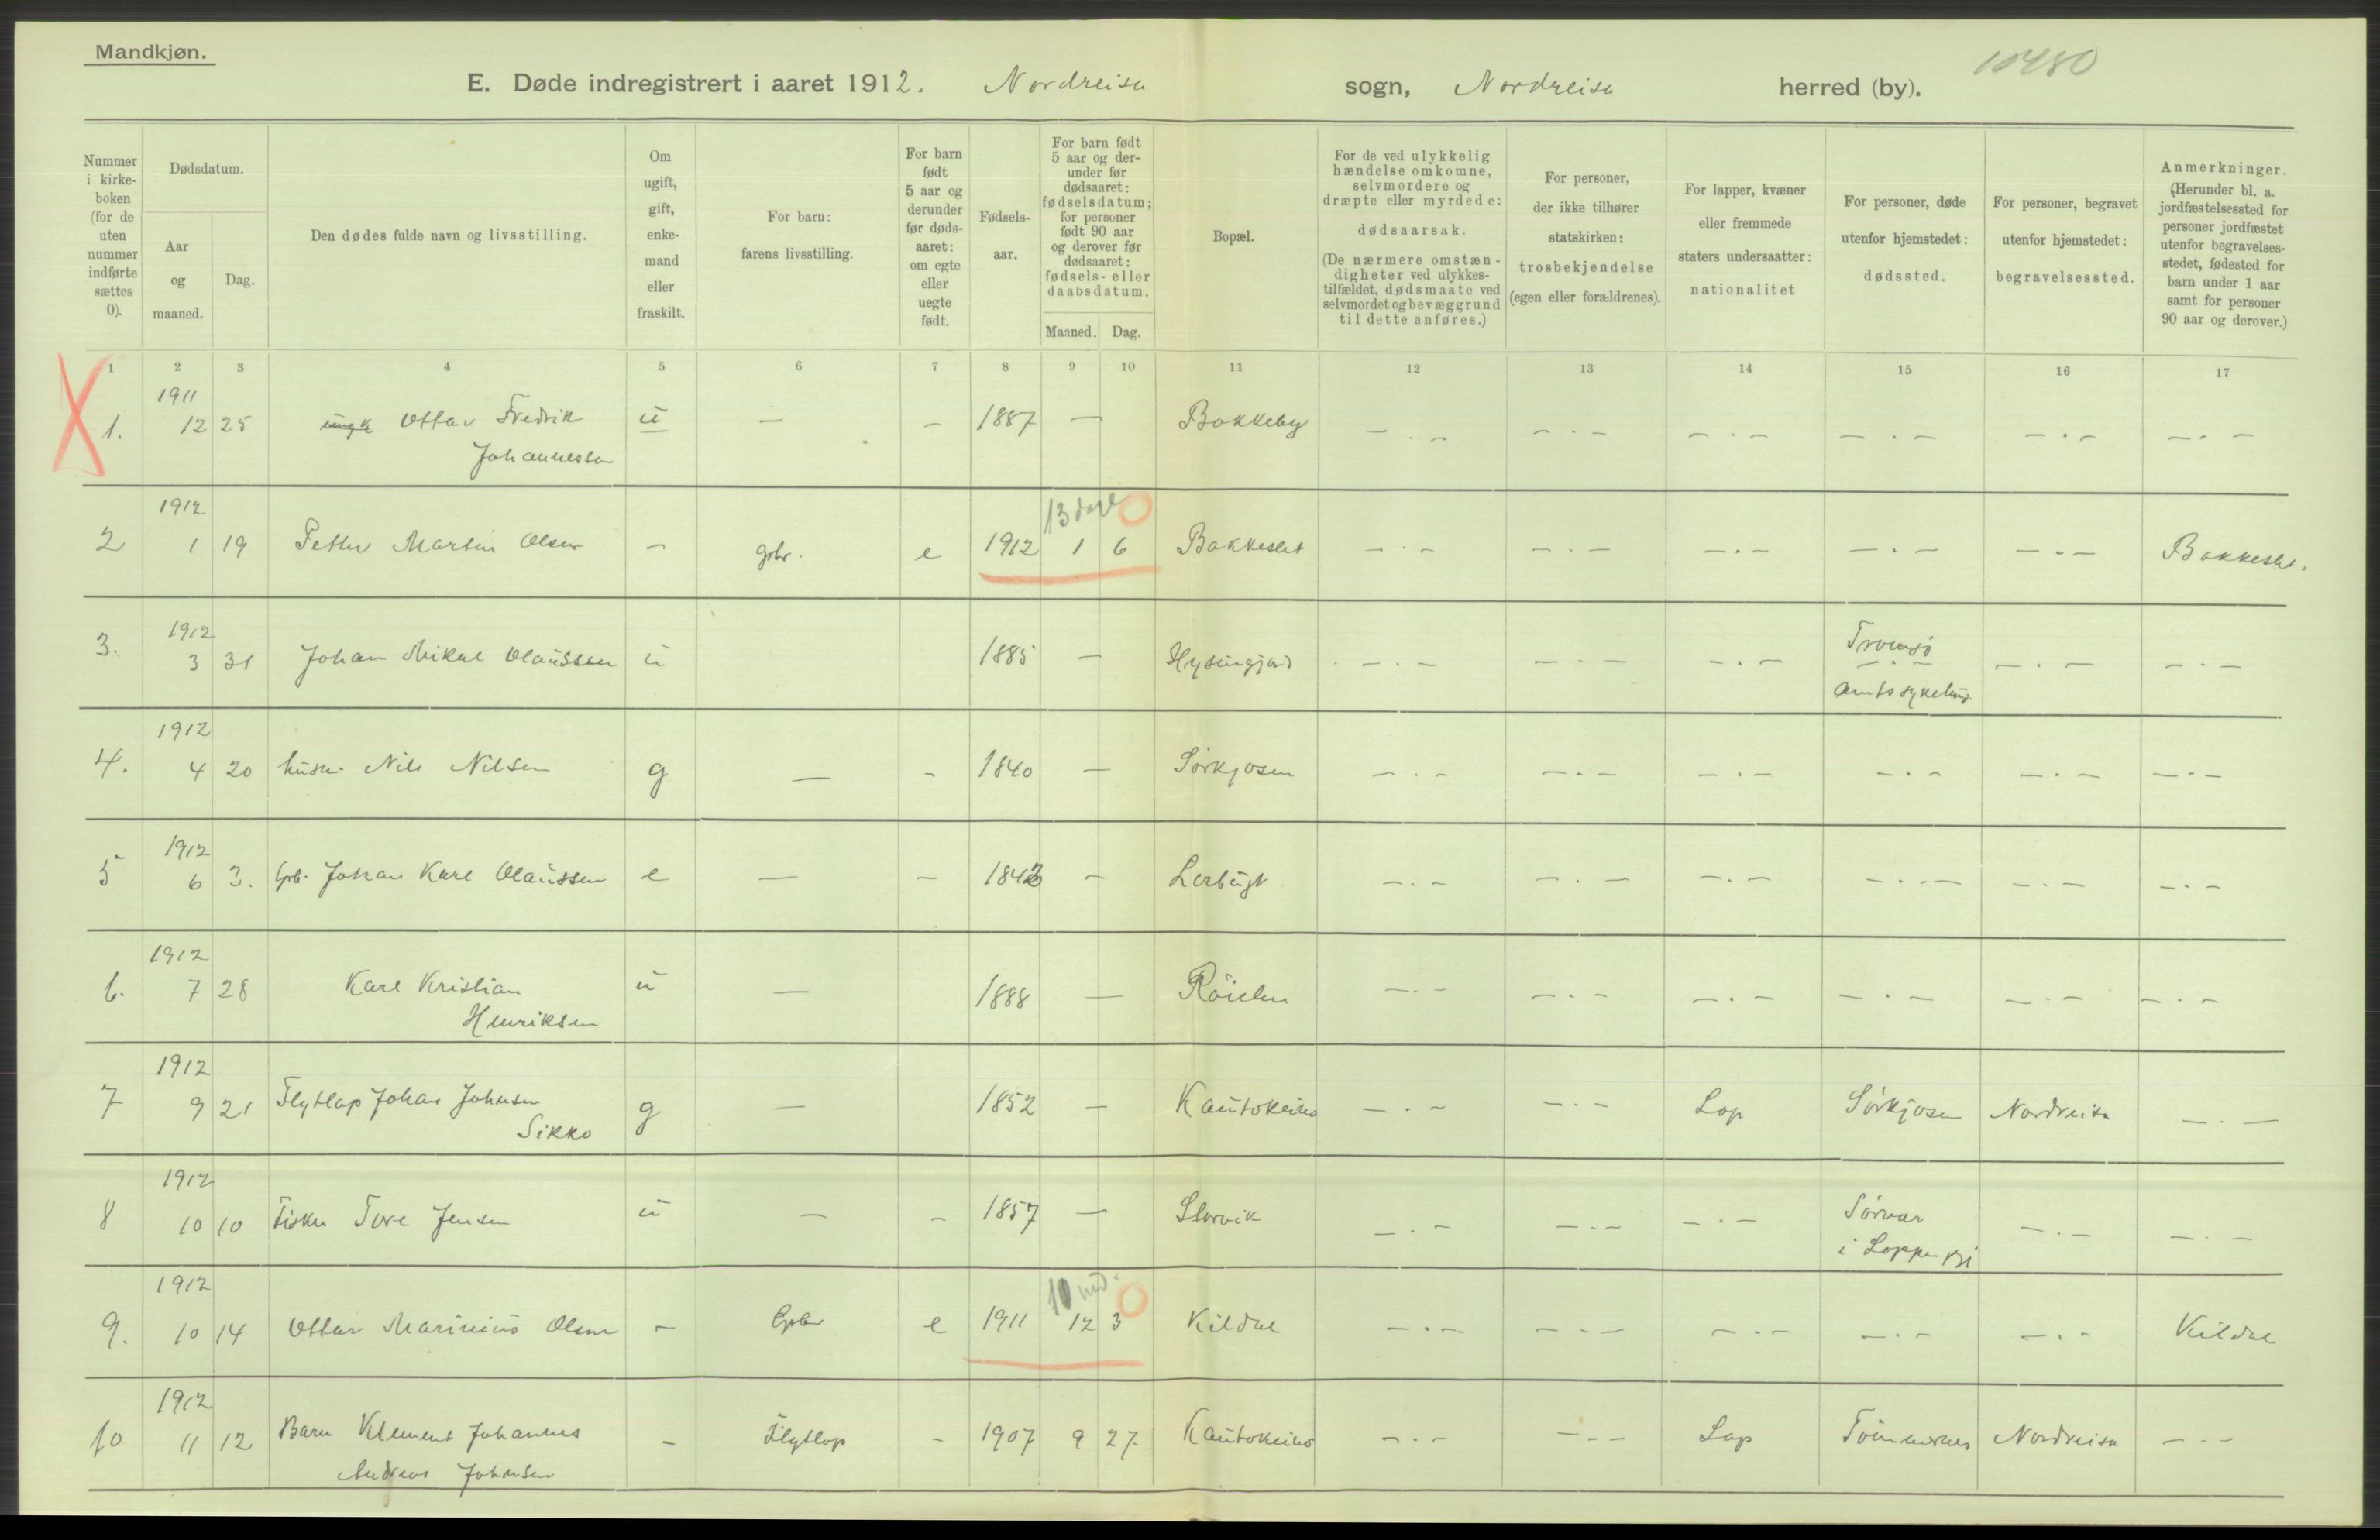 Mandkjøn.
10480
E. Døde indregistrert i aaret 1912. Nordreisa sogn, Nordreisa herred (by).
Nummer i kirkeboken (for de uten nummer indførte sættes 0).
Dødsdatum.
Aar og maaned.
Dag.
Den dødes fulde navn og livsstilling.
Om ugift, gift, enkemand eller fraskilt.
For barn: farens livsstilling.
For barn født 5 aar og derunder før dødsaaret: om egte eller uegte født.
Fødselsaar.
For barn født 5 aar og derunder før dødsaaret: fødselsdatum; for personer født 90 aar og derover før dødsaaret: fødsels- eller daabsdatum.
Maaned. Dag.
Bopæl.
For de ved ulykkelig hændelse omkomne, selvmordere og dræpte eller myrdede: dødsaarsak. (De nærmere omstændigheter ved ulykkestilfældet, dødsmaate ved selvmordet og bevæggrund til dette anføres.)
For personer, der ikke tilhører statskirken: trosbekjendelse (egen eller forældrenes).
For lapper, kvæner eller fremmede staters undersaatter: nationalitet
For personer, døde utenfor hjemstedet: dødssted.
For personer, begravet utenfor hjemstedet: begravelsessted.
Anmerkninger. (Herunder bl. a. jordfæstelsessted for personer jordfæstet utenfor begravelsesstedet, fødested for barn under 1 aar samt for personer 90 aar og derover.)
1 2 3 4 5 6 7 8 9 10 11 12 13 14 15 16 17
1911
1. 12 25 Ottar Fredrik u — – 1887 — Bakkeby — . — — . — — . — — . — — . — — . —
Johannessen
1912 13 dage 0
2 1 19 Petter Martin Olsen — gbr. e 1912 1 6 Bakkeslet — . — — . — — . — — . — — . — Bakkeslet.
1912 Tromsö
3. 3 31 Johan Mikal Olaussen u 1885 — — . — — . — — . — — . — — . — — . —
amtssykehus
1912
4. 4 20 husm. Nils Nilsen g — – 1840 — Sörkjosen — . — — . — — . — — . — — . — — . —
1912
5 6 3. Gbr. Johan Karl Olaussen e — – 1843 – Lerbugt — . — — . — — . — — . — — . — — . —
1912
6. 7 28 Karl Kristian u — 1888 — Röielen — . — — . — — . — — . — — . — — . —
Henriksen
1912
7 9 21 Flytlap Johan Johnsen g — 1852 — Kautokeino — . — — . — Lap Sörkjosen Nordreisa — . —
Sikko
1912
8 10 10 Fisker Tore Jensen u — – 1857 — Storvik — . — — . — — . — Sörvær — . — — . —
i Loppen
1912 10 md. 0
9. 10 14 Ottar Marinius Olsen — Gbr e 1911 12 3 Kildal — . — — . — — . — — . — — . — Kildal
1912
10 11 12 Barn Klemet Johannes – Flytlap – 1907 9 27. Kautokeino — . — — . — Lap Nordreisa — . —
Andreas Johnsen